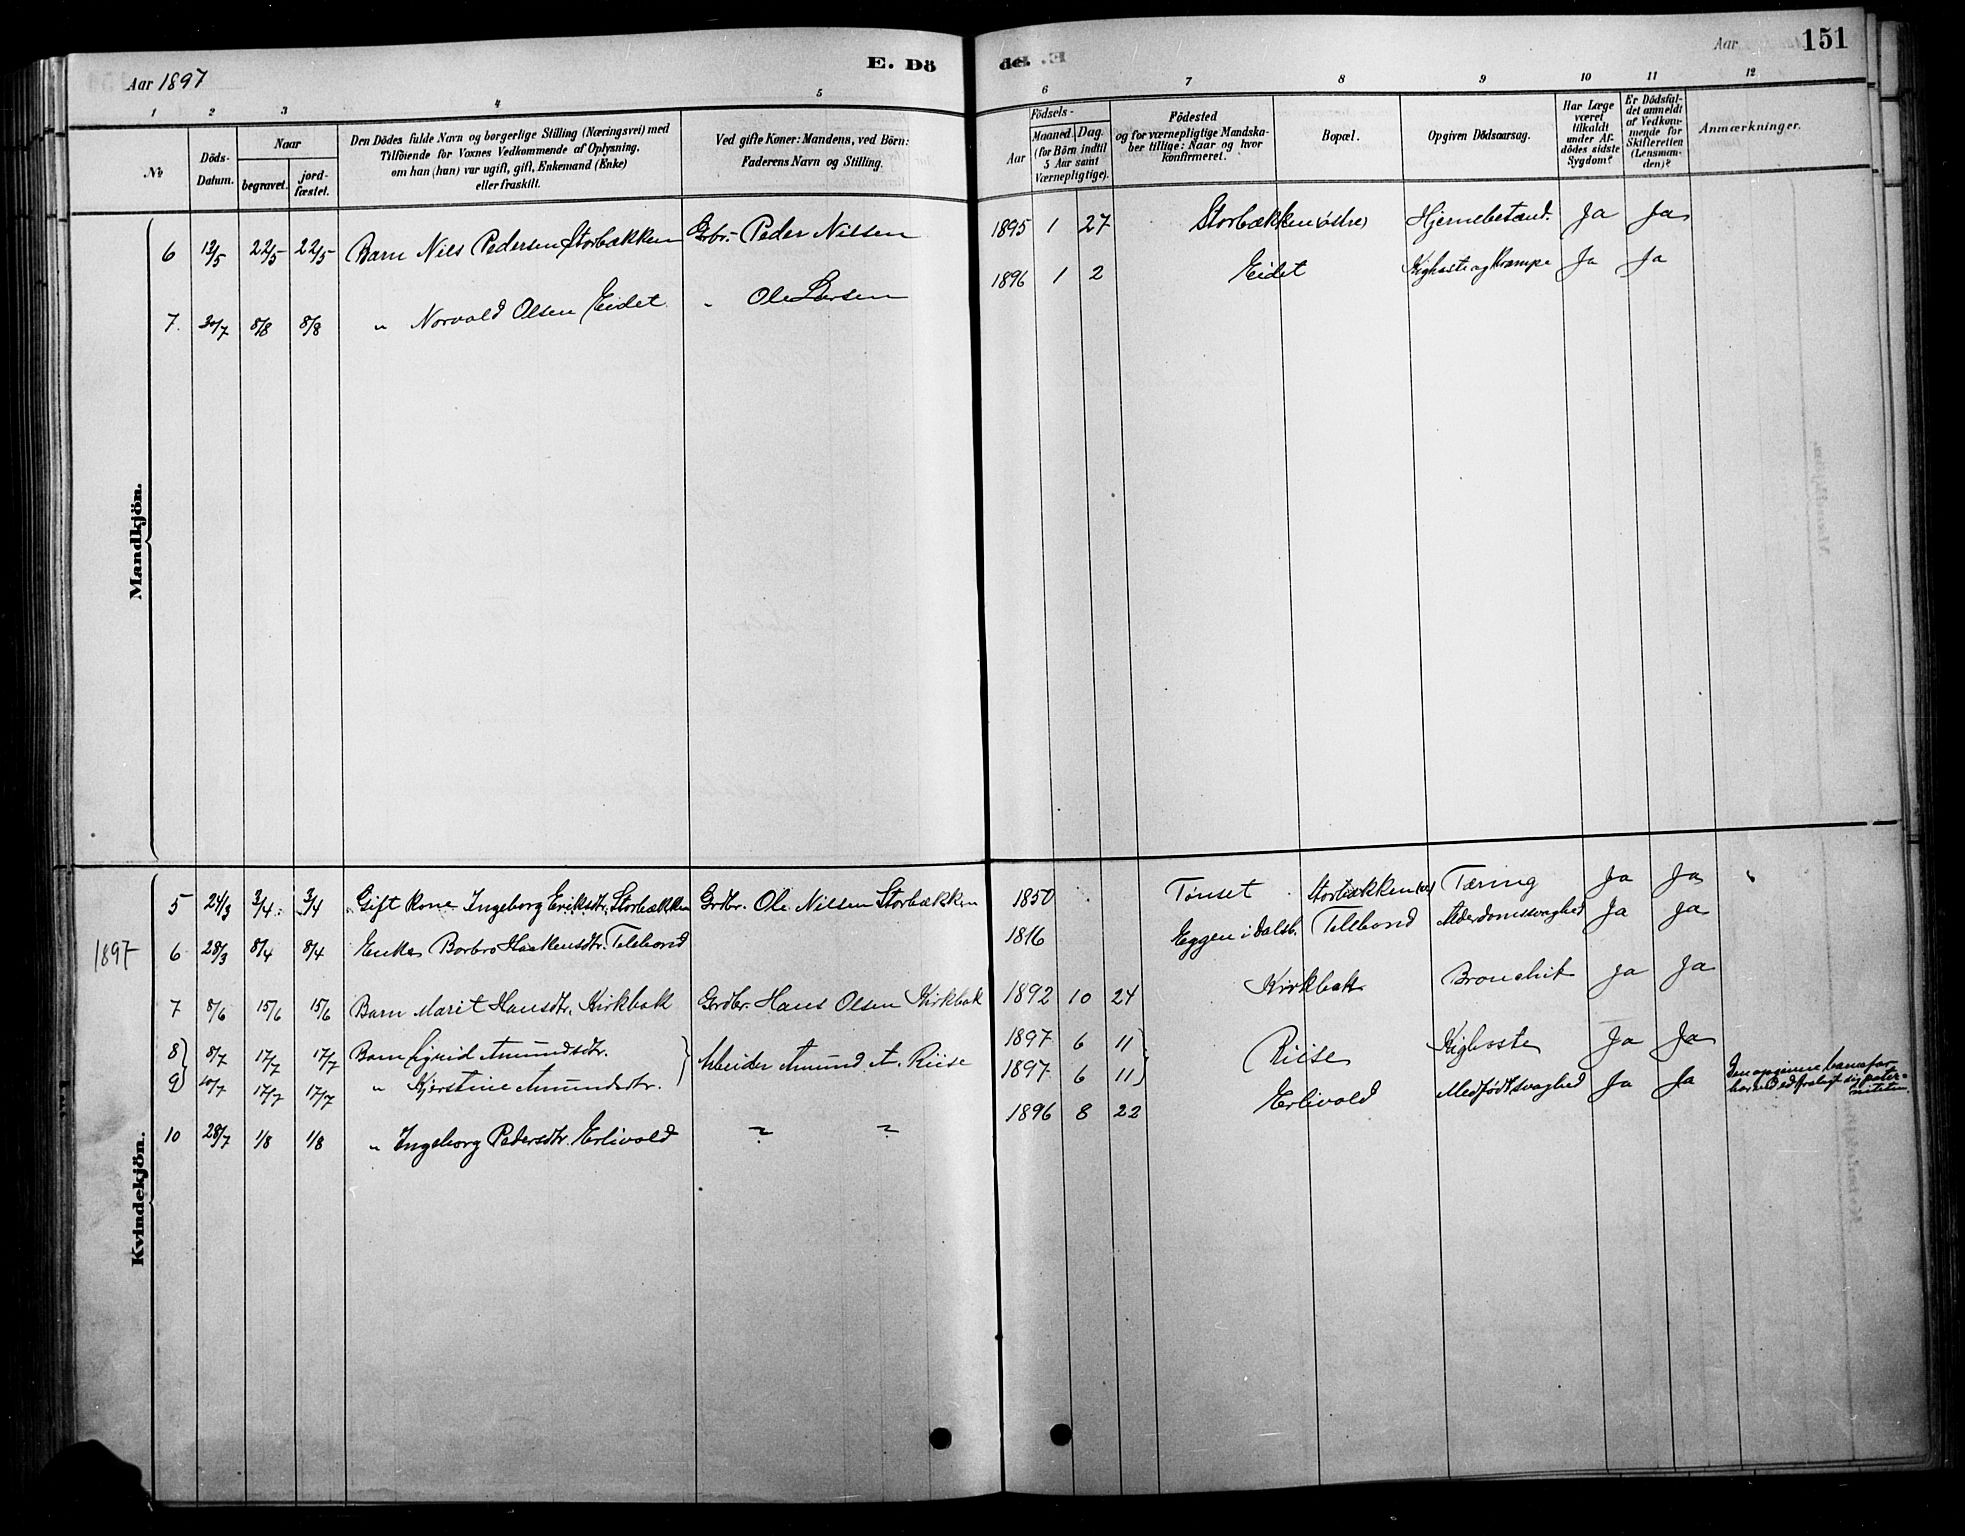 Aar 1897
E. Dö
de.
Aar
151
1 2 3 4 5 6 7 8 9 10 11 12
№
Döds-Datum.
Naar
begravet.
jord-fæstet.
Den Dödes fulde Navn og borgerlige Stilling (Næringsvei) med
Tilföiende for Voxnes Vedkommende af Oplysning,
om han (hun) var ugift, gift, Enkemand (Enke)
eller fraskilt.
Ved gifte Koner: Mandens, ved Börn:
Faderens Navn og Stilling.
Födsels-
Aar
Maaned. Dag.
(for Börn indtil
5 Aar samt
Værnepligtige).
Födested
og for værnepligtige Mandska-
ber tillige: Naar og hvor
konfirmeret.
Bopæl.
Opgiven Dödsaarsag.
Har Læge
været
tilkaldt
under Af-
dödes sidste
Sygdom?
Er Dödsfal-
det anmeldt
af Vedkom-
mende for
Skifteretten
(Lensman-
den)?
Anmærkninger.
Mandkjön.
6 12/5 22/5 22/5 Barn Nils Pedersen Storbækken Gbr. Peder Nilsen 1895 1 27 Storbækken (østre) Hjernebetænd. Ja Ja
7. 30/7 8/8 8/8 " Norvald Olsen Eidet " Ole Larsen 1896 1 2 Eidet Kighoste og Krampe Ja Ja
Kvindekjön.
1897
5 24/3 3/4 3/4 Gift Kone Ingeborg Eriksdtr. Storbækken Grdbr. Ole Nilsen Storbækken 1850 Tønset Storbækken Tæring Ja Ja
6 28/3 8/4 8/4 Enke Borbro Haakensdtr. Telebond 1816 Eggen i Dalsb. Telebond Alderdomssvaghed Ja Ja
7 8/6 15/6 15/6 Barn Marit Hansdtr. Kirkbak Grdbr. Hans Olsen Kirkbak 1892 10 24 Kirkbak Bronchit Ja Ja
8 8/7 17/7 17/7 Barn Sigrid Amundsdtr. Arbeider Amund A. Riise 1897 6 11 Riise Kighoste Ja Ja
9 10/7 17/7 17/7 " Kjerstine Amundsdtr. 1897 6 11 Medfødt svaghed Ja Ja
10 28/7 1/8 1/8 " Ingeborg Pedersdtr. Erlivold ? ? 1896 8 22 Erlivold
Den opgivne barnefar har nedfralagt sig paterniteten.